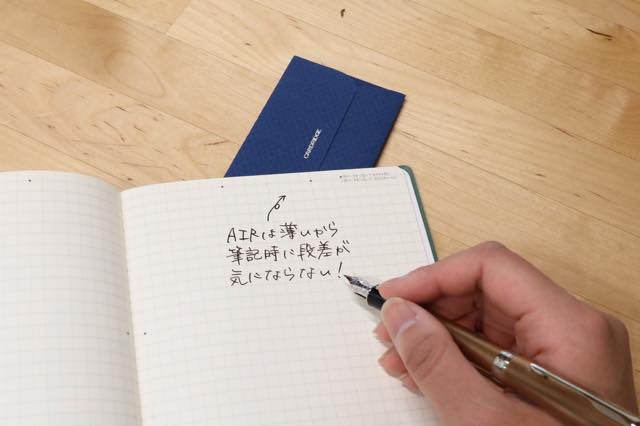 CARDRIDGE
AIRは薄いから
筆記時に段差が
気にならない!